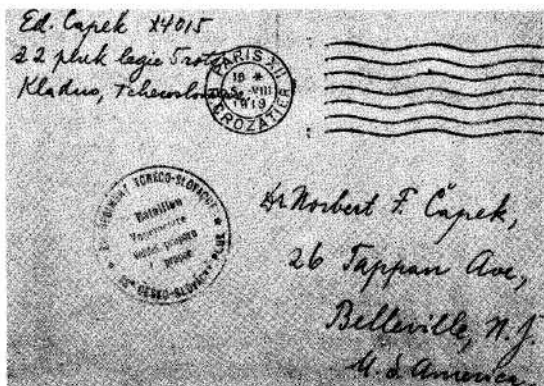 Ed. Capek X4015
22 pluk legie 5 rota
Kladno, Tchecoslov
PARIS XII
15 *
5 -VIII
1919
CROZATIER
REGIMENT TCHECO-SLOVAQUE *
Bataillon
prapor
* 22ⁿᵈ ČESKO-SLOVACKY PLUK
Dr Norbert F. Čapek,
26 Tappan Ave,
Belleville, N. J.
U. S. America.